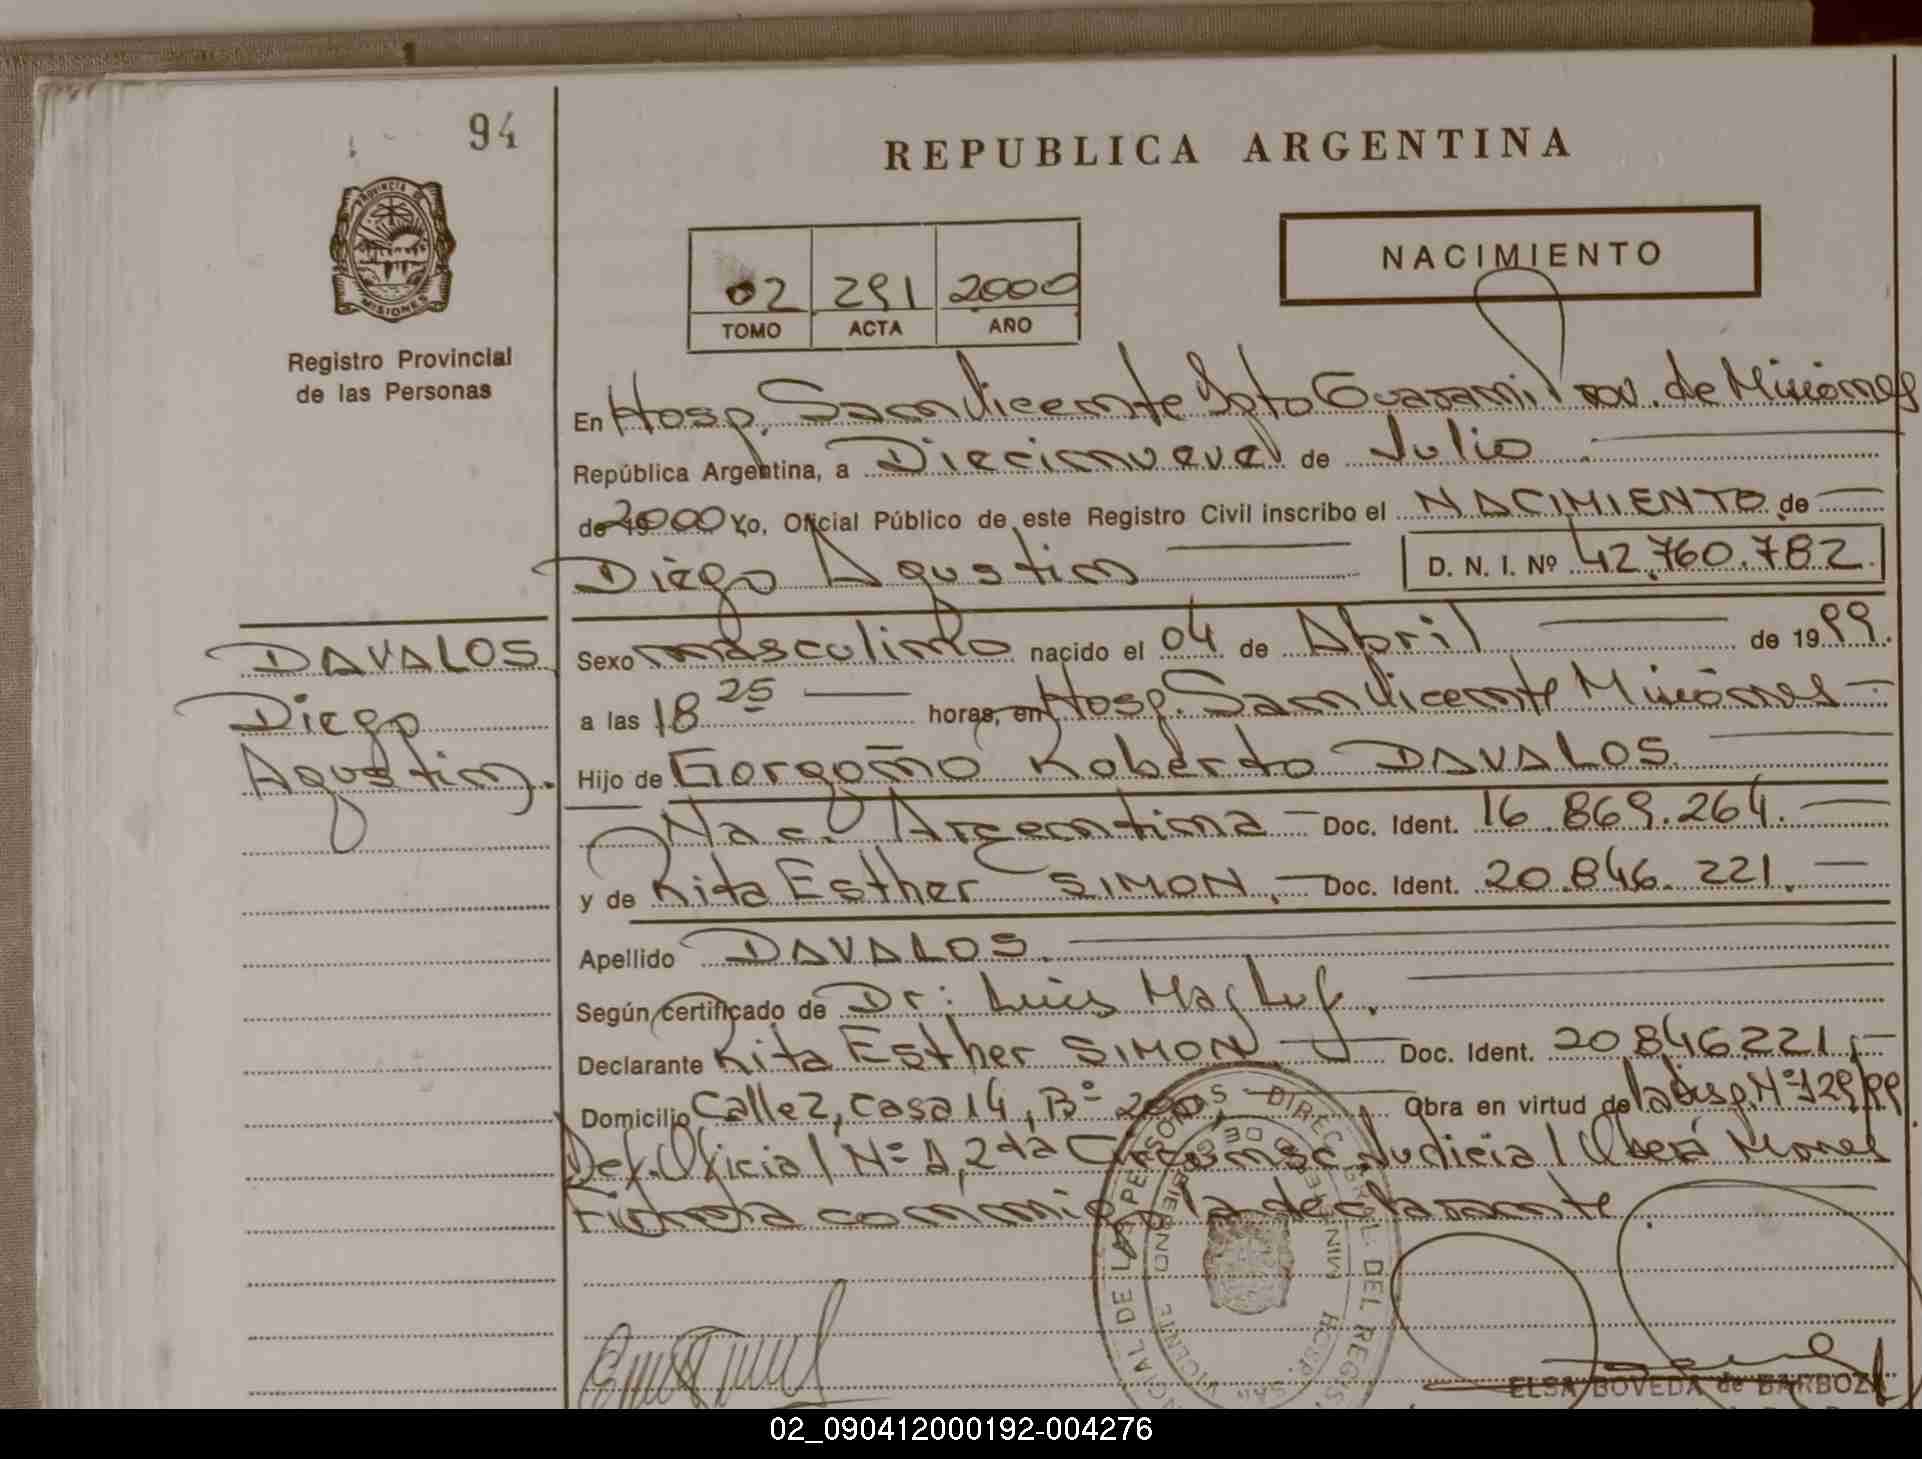 94
REPUBLICA ARGENTINA
PROVINCIA DE
MISIONES
Registro Provincial
de las Personas
NACIMIENTO
02 291 2000
TOMO ACTA AÑO
En Hosp. San Vicente Dpto Guarani Prov. de Misiones
República Argentina, a Diecinueve de Julio
de 19 2000 Yo, Oficial Público de este Registro Civil inscribo el NACIMIENTO de
Diego Agustin D. N. I. Nº 42.760.782.
DAVALOS
Diego
Agustin.
Sexo masculino nacido el 04 de Abril de 1999.
a las 18 25 horas, en Hosp. San Vicente Misiones
Hijo de Gorgoño Roberto DAVALOS
Nac. Argentina Doc. Ident. 16.869.264.
y de Rita Esther SIMON. Doc. Ident. 20.846.221.
Apellido DAVALOS.
Según certificado de Dr: Luis
Declarante Rita Esther SIMON Doc. Ident. 20846221
Domicilio Calle 2, Casa 14, Bº 200, Obra en virtud de la disp. Nº 129/99
Def. Oficial Nº 1, 2da Circunsc. Judicial Oberá Mnes
Firma conmigo la declarante.
HOSP. SAN VICENTE
ELSA BOVEDA de BARBOZA
02_090412000192-004276